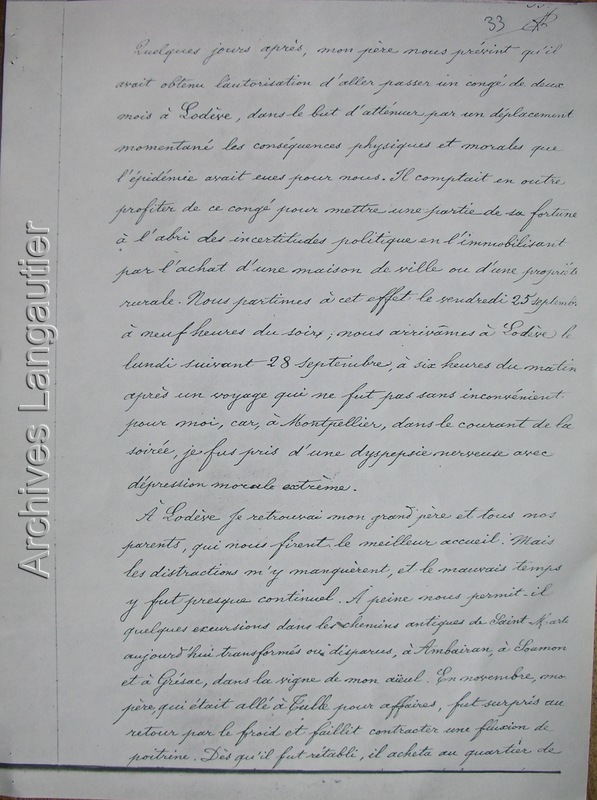 33
Quelques jours après, mon père nous prévint qu'il
avait obtenu l'autorisation d'aller passer un congé de deux
mois à Lodève, dans le but d'atténuer par un déplacement
momentané les conséquences physiques et morales que
l'épidémie avait eues pour nous. Il comptait en outre
profiter de ce congé pour mettre une partie de sa fortune
à l'abri des incertitudes politique en l'immobilisant
par l'achat d'une maison de ville ou d'une propriété
rurale. Nous partimes à cet effet le vendredi 25 septembre
à neuf heures du soir; nous arrivâmes à Lodève le
lundi suivant 28 septembre, à six heures du matin
après un voyage qui ne fut pas sans inconvénient
pour moi, car, à Montpellier, dans le courant de la
soirée, je fus pris d'une dyspepsie nerveuse avec
dépression morale extrême.
À Lodève je retrouvai mon grand père et tous nos
parents, qui nous firent le meilleur accueil. Mais
les distractions m'y manquèrent, et le mauvais temps
y fut presque continuel. À peine nous permit-il
quelques excursions dans les chemins antiques de Saint
aujourd'hui transformés ou disparus, à Ambairan, à Soumon
et à Grésac, dans la vigne de mon aïeul. En novembre, mo
père, qui était allé à Tulle pour affaires, fut surpris au
retour par le froid et faillit contracter une fluxion de
poitrine. Dès qu'il fut rétabli, il acheta au quartier de
Archives Langautier